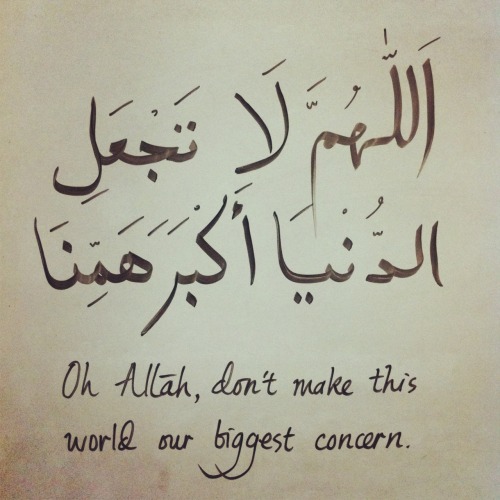 اَللّٰهُمَّ لَا تَجْعَلِ
الدُّنْيَا أَكْبَرَ هَمِّنَا
Oh Allāh, don't make this
world our biggest concern.